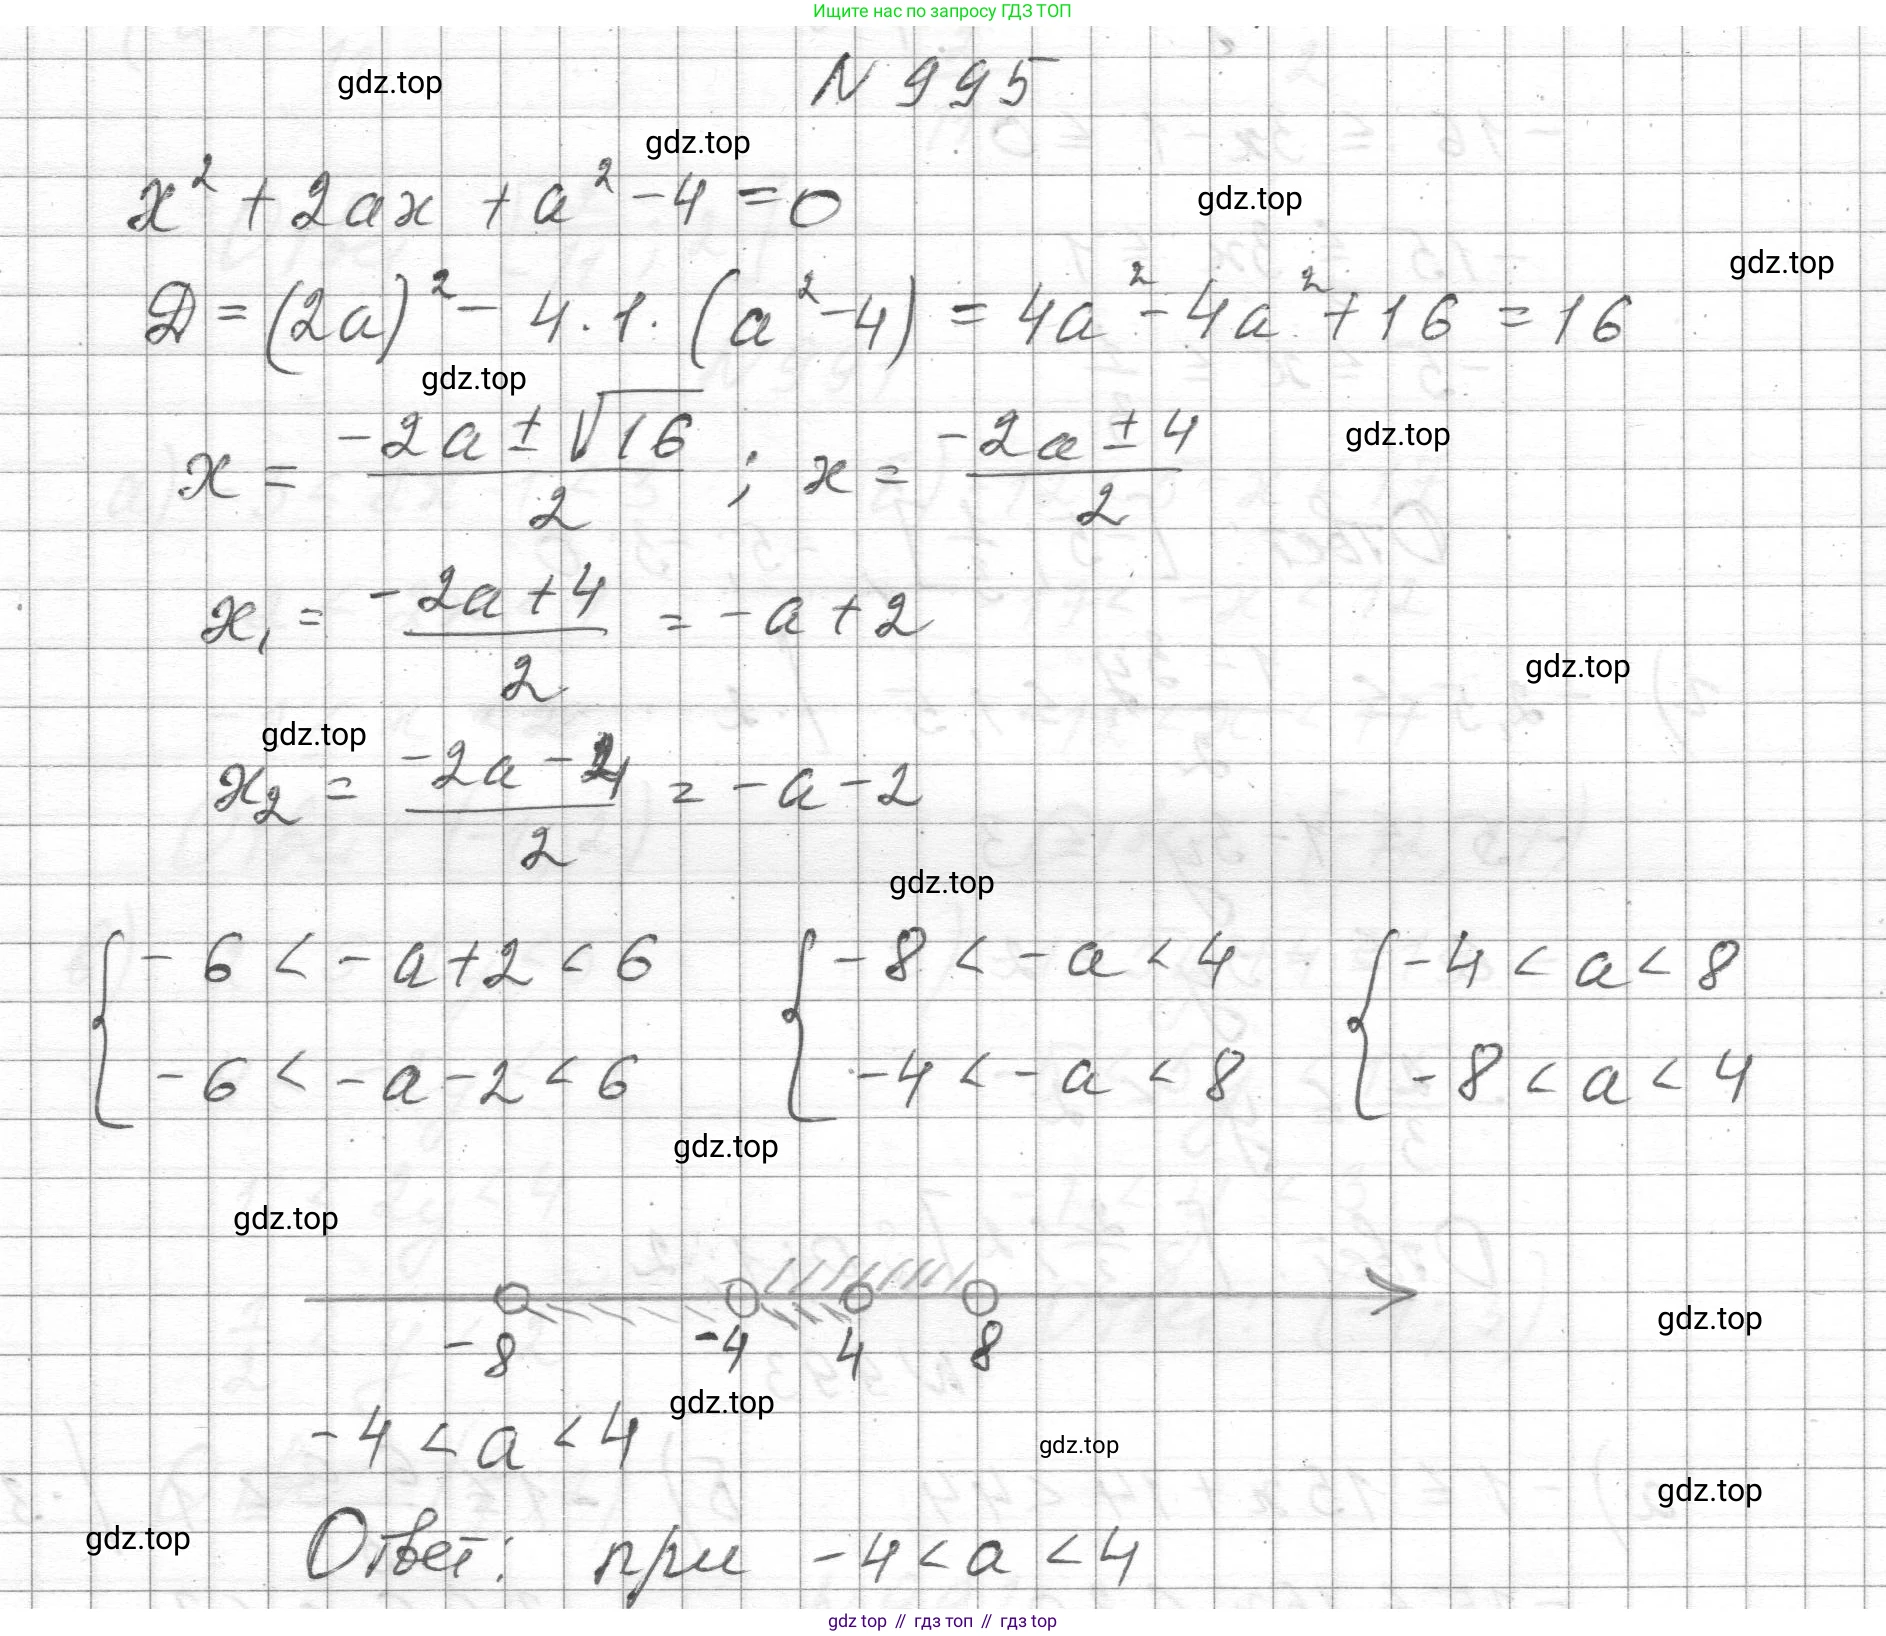 Ищите нас по запросу ГДЗ ТОП
N 995
gdz.top
gdz.top
x² + 2ax + a² - 4 = 0
gdz.top
gdz.top
D = (2a)² - 4 · 1 · (a² - 4) = 4a² - 4a² + 16 = 16
gdz.top
x = (-2a ± √16)/2 ; x = (-2a ± 4)/2
gdz.top
x₁ = (-2a + 4)/2 = -a + 2
gdz.top
gdz.top
x₂ = (-2a - 4)/2 = -a - 2
gdz.top
{ -6 < -a + 2 < 6 { -8 < -a < 4 { -4 < a < 8
-6 < -a - 2 < 6 -4 < -a < 8 -8 < a < 4
gdz.top
gdz.top
-8 -4 4 8
gdz.top
gdz.top
-4 < a < 4
gdz.top
gdz.top
gdz.top
Ответ: при -4 < a < 4
gdz top // гдз топ // гдз top